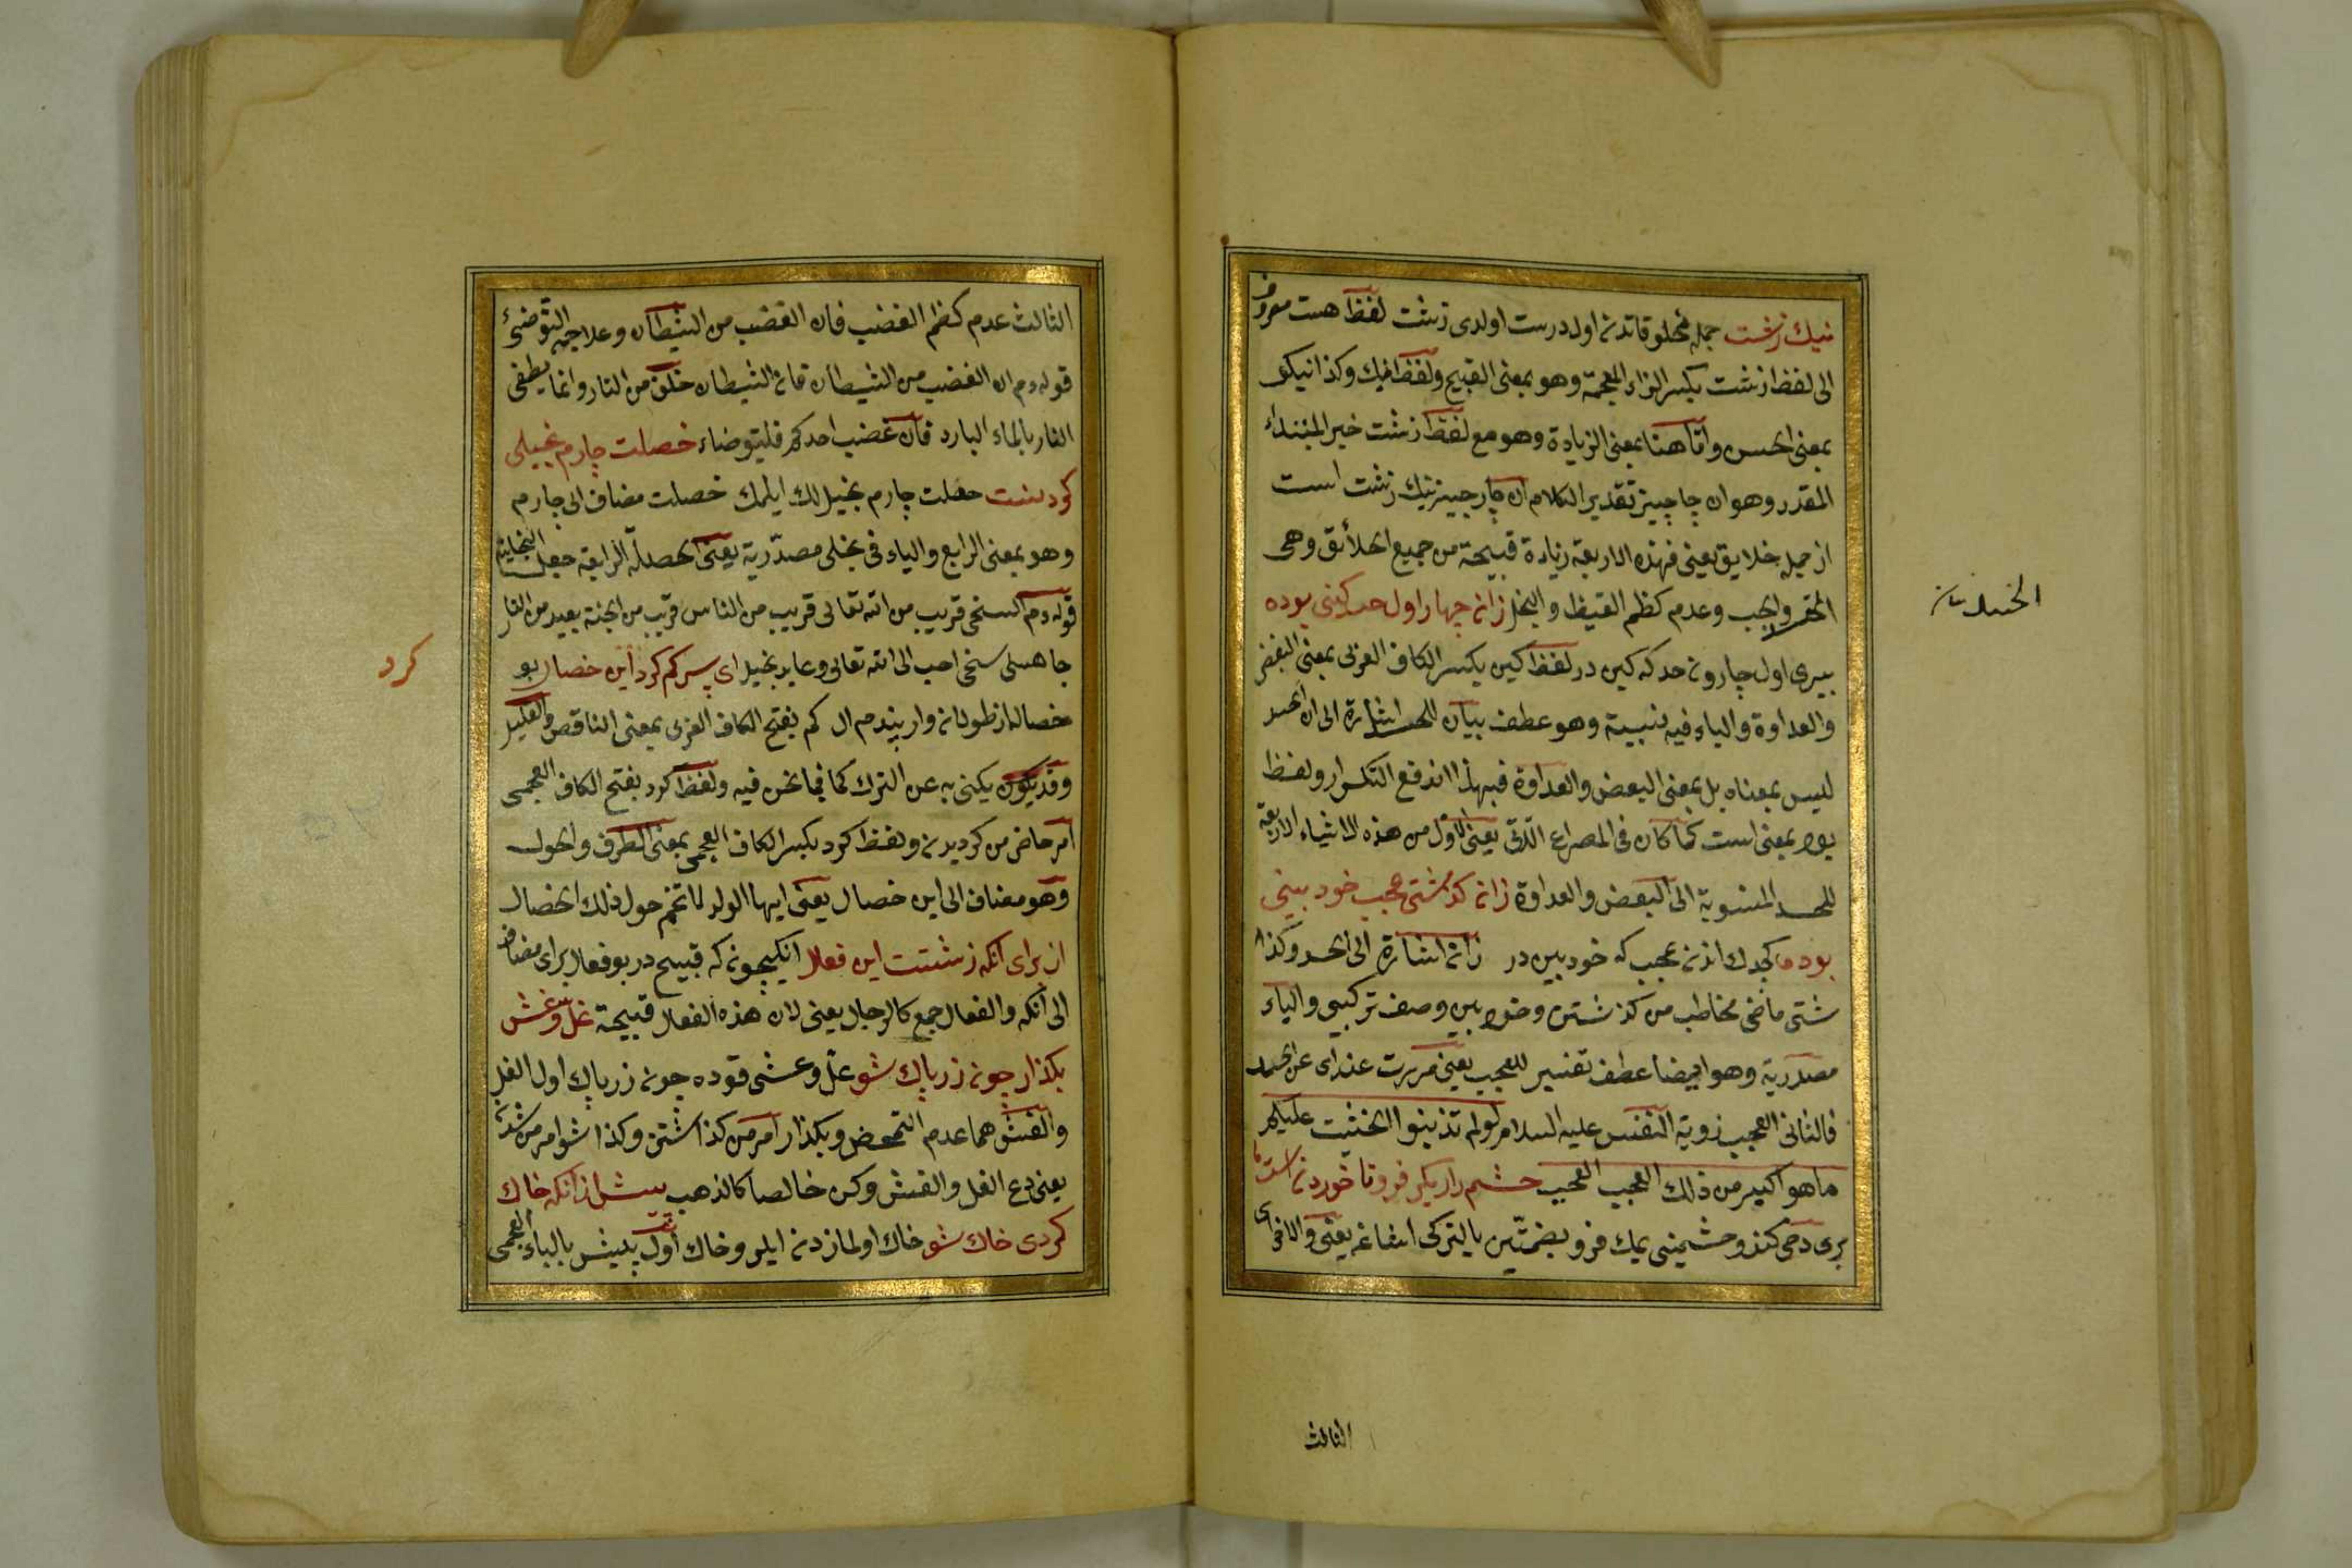 نيك زشت جمله مخلوقاتدن اول درست اولدى زشت لفظ هست معروف
الى لفظ زشت بكسر الزاء المعجمة وهو بمعنى القبيح ولفظ نيك وكذا نيكو
بمعنى الحسن واما هنا بمعنى الزيادة وهو مع لفظ زشت خبر المبتداء
المقدر وهو ان چا چيز تقدير الكلام ان چار چيز نيك زشت است
از جمله خلايق يعنى فهذه الاربعة زيادة قبيحة من جميع الخلائق وهى
والعجب وعدم كظم الغيظ والبخل زان چهار اول حسد كينى بوده
بيرى اول چارون حسد كه كين در لفظ كين بكسر الكاف العربى بمعنى البغض
والعداوة والياء فيه نسبية وهو عطف بيان للحسد اشارة الى ان الحسد
ليس بمعناه بل بمعنى البغض والعداوة فبهذا اندفع التكرار ولفظ
بود بمعنى است كما كان فى المصراع الآتى يعنى الاول من هذه الاشياء الاربعة
للحسد المنسوبة الى البغض والعداوة زان كذشتى عجب خود بينى
بوده كجدك اندن عجب كه خود بين در زان اشارة الى الحسد وكذا
شتى ماضى مخاطب من كذشتن وخود بين وصف تركيبى والياء
مصدرية وهو ايضا عطف تفسير للعجب يعنى مررت عنداى عن الحسد
فالثانى العجب زوية النفس عليه السلام لو لم تذنبوا لخشيت عليكم
ما هو اكبر من ذلك العجب العجب خشم را ديكر فرو نا خوردن است
برى دخى كندو خشمينى يمك فرو بضمتين بالتركى اشاغه يعنى والاخرى
الثالث
الثالث عدم كظم الغضب فان الغضب من الشيطان وعلاجه التوضئ
قوله عم ان الغضب من الشيطان فان الشيطان خلق من النار وانما يطفى
النار بالماء البارد فان غضب احدكم فليتوضاء خصلت چارم بخيلى
كردنست خصلت چارم بخيل لك ايلمك خصلت مضاف الى چارم
وهو بمعنى الرابع والياء فى بخلى مصدرية يعنى الخصلة الرابعة جعل البخالة
قوله عم السخى قريب من الله تعالى قريب من الناس قريب من الجنة بعيد من النار
جاهلى سخى احب الى الله تعالى وعابد بخيل اى پسر كم كرد اين خصال بو
كرد
خصاله از طولان وار پندم ال كم بفتح الكاف العربى بمعنى الناقص والقليل
وقد يكون يكنى به عن الترك كما فيما نحن فيه ولفظ كرد بفتح الكاف العجمى
امر حاضر من كرديدن ولفظ كرد بكسر الكاف العجمى بمعنى الطرف والحول
وهو مضاف الى اين خصال يعنى ايها الولد لا تخم حول ذلك الخصال
از براى آنكه زشتست اين فعال انكيچون كه قبيح در بو فعال براى مضاف
الى آنكه والفعال جمع كالرجال يعنى لان هذه الفعال قبيحة غل وغش
بكذار چون زر پاك شو غل وغشى قوده چون زر پاك اول الغل
والغش هما عدم التمحض وبكذار امر من كذاشتن وكذا شو امر من شدن
يعنى دع الغل والغش وكن خالصا كالذهب پيش از آنكه خاك
كردى خاك شو خاك اولمازدن ايلرو خاك اول پيش بالباء العجمى